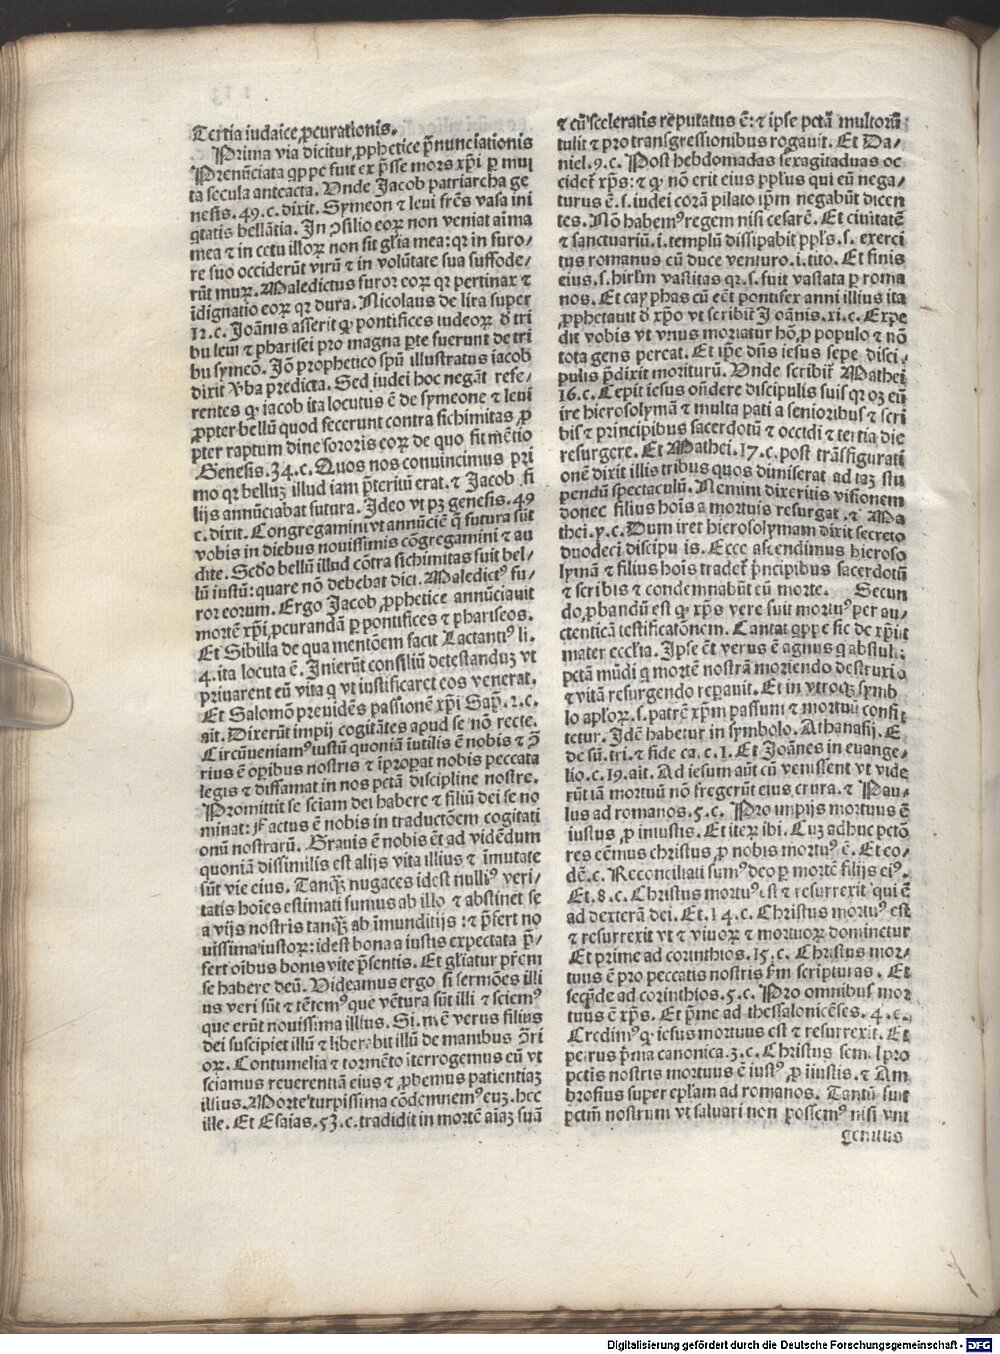 Tertia iudaice ꝓcurationis.
Prima via dicitur ꝓphetice p̄nunciationis
Prenūciata qꝑpe fuit ex p̄sse mors xp̄i ꝑ mul
ta secula anteacta. Vnde Jacob patriarcha ge
nesis. 49. c. dixit. Symeon ⁊ leui frēs vasa ini
qtatis bellātia. In ↄsilio eoꝝ non veniat aīma
mea ⁊ in cetu illoꝝ non sit gl̄ia mea: qꝛ in furo⸗
re suo occiderūt virū ⁊ in volūtate sua suffode⸗
rūt muꝝ. Maledictus furor eoꝝ qꝛ pertinax ⁊
īdignatio eoꝝ qꝛ dura. Nicolaus de lira super
12. c. Joānis asserit qꝫ pontifices iudeoꝝ d̄ tri
bu leui ⁊ pharisei pro magna ꝑte fuerunt de tri
bu symeō. Jō prophetico spū illustratus iacob
dixit v̄ba predicta. Sed iudei hoc negāt refe⸗
rentes qꝫ iacob ita locutus ē de symeone ⁊ leui
ꝓpter bellū quod fecerunt contra sichimitas ꝓ
pter raptum dine sororis eoꝝ de quo fit mētio
Genesis. 34. c. Quos nos conuincimus pri
mo qꝛ belluꝫ illud iam p̄teritū erat. ⁊ Jacob fi
lijs annūciabat futura. Ideo vt pꝫ genesis. 49
c. dixit. Congregamini vt annūciē q̄ futura sūt
vobis in diebus nouissimis cōgregamini ⁊ au
dite. Scd̄o bellū illud cōtra sichimitas fuit bel⸗
lū iustū: quare nō debebat dici. Maledictꝰ fu⸗
ror eorum. Ergo Jacob ꝓphetice annūciauit
mortē xp̄i ꝓcurandā ꝑ pontifices ⁊ phariseos.
Et Sibilla de qua mentōem facit Lactantiꝰ li.
4. ita locuta ē. Inierūt consiliū detestanduꝫ vt
priuarent eū vita q vt iustificaret eos venerat.
Et Salomō preuidēs passionē xp̄i Sap̄. 2. c.
ait. Dixerūt impij cogitātes apud se nō recte.
Circūueniamꝰ iustū quoniā iutilis ē nobis ⁊ ↄ̄
rius ē oꝑibus nostris ⁊ īproꝑat nobis peccata
legis ⁊ diffamat in nos pctā discipline nostre.
Promittit se sciam dei habere ⁊ filiū dei se no
minat: Factus ē nobis in traductōem cogitati
onū nostrarū. Grauis ē nobis ēt ad vidēdum
quoniā dissimilis est alijs vita illius ⁊ īmutate
sūt vie eius. Tanqꝫ nugaces idest nulliꝰ veri⸗
tatis hoīes estimati sumus ab illo ⁊ abstinet se
a vijs nostris tanqꝫ ab īmunditijs: ⁊ p̄fert no
uissima iustoꝝ: idest bona a iustis expectata p̄⸗
fert oībus bonis vite p̄sentis. Et gl̄iatur pr̄em
se habere deū. Videamus ergo si sermōes illi
us veri sūt ⁊ tētemꝰ que vētura sūt illi ⁊ sciemꝰ
que erūt nouissima illius. Si. n. ē verus filius
dei suscipiet illū ⁊ liberabit illū de manibus ↄ̄ri
oꝝ. Contumelia ⁊ tormēto iterrogemus eū vt
sciamus reuerentiā eius ⁊ ꝓbemus patientiaꝫ
illius. Morte turpissima cōdemnemꝰ euꝫ. hec
ille. Et Esaias. 53. c. tradidit in mortē aīaꝫ suā
⁊ cū sceleratis reputatus ē: ⁊ ipse pctā multorū
tulit ⁊ pro transgressionibus rogauit. Et Da⸗
niel. 9. c. Post hebdomadas sexagitaduas oc
cidet̄ xp̄s: ⁊ qꝫ nō erit eius ppl̄us qui eū nega⸗
turus ē. s. iudei corā pilato ip̄m negabūt dicen
tes. Nō habemꝰ regem nisi cesarē. Et ciuitatē
⁊ sanctuariū. i. templū dissipabit ppl̄s. s. exerci
tus romanus cū duce venturo. i. tito. Et finis
eius. s. hirl̄m vastitas qꝛ. s. fuit vastata ꝑ roma
nos. Et cayphas cū eēt pontifex anni illius ita
ꝓphetauit d̄ xp̄o vt scribit̄ Joānis. xi. c. Expe
dit vobis vt vnus moriatur hō ꝓ populo ⁊ nō
tota gens pereat. Et ip̄e dn̄s iesus sepe disci⸗
pulis p̄dixit moriturū. Vnde scribit̄ Mathei
16. c. Cepit iesus on̄dere discipulis suis qꝛ oꝫ eū
ire hierosolymā ⁊ multa pati a senioribus ⁊ scri
bis ⁊ principibus sacerdotū ⁊ occidi ⁊ tertia die
resurgere. Et Mathei. 17. c. post trāsfigurati
onē dixit illis tribus quos dimiserat ad taꝫ stu
pendū spectaculū. Nemini dixeritis visionem
donec filius hoīs a mortuis resurgat. ⁊ Ma
thei. y. c. Dum iret hierosolymam dixit secreto
duodecī discipu is. Ecce ascendimus hieroso
lymā ⁊ filius hoīs tradet̄ p̄ncipibus sacerdotū
⁊ scribis ⁊ condemnabūt eū morte. Secun
do ꝓbandū est qꝫ xp̄s vere fuit mortuꝰ per au⸗
ctenticā testificatōnem. Cantat qꝑpe sic de xp̄i
mater eccl̄ia. Ipse ēt verus ē agnus q abstul:
pctā mūdi q mortē nostrā moriendo destruxi
⁊ vitā resurgendo reꝑauit. Et in vtroqꝫ symb
lo apl̄oꝝ. s. patrē xp̄m passum ⁊ mortuū confi
tetur. Idē habetur in symbolo. Athanasij. E
de sū. tri. ⁊ fide ca. c. 1. Et Joānes in euange⸗
lio. c. 19. ait. Ad iesum aūt cū venissent vt vide
rūt iā mortuū nō fregerūt eius crura. ⁊ Pau⸗
lus ad romanos. 5. c. Pro impijs mortuus ē
iustus ꝓ iniustis. Et iteꝝ ibi. Cuꝫ adhuc pctō
res eēmus christus ꝓ nobis mortuꝰ ē. Et eo⸗
dē. c. Reconciliati sumꝰ deo ꝑ mortē filij eiꝰ.
Et. 8. c. Christus mortuꝰ est ⁊ resurrexit qui ē
ad dexterā dei. Et. 14. c. Christus mortuꝰ est
⁊ resurrexit vt ⁊ viuoꝝ ⁊ mortuoꝝ dominetur
Et prime ad corinthios. 15. c. Christus mor⸗
tuus ē pro peccatis nostris s̄m scripturas. Et
secp̄de ad corinthios. 5. c. Pro omnibus mor
tuus ē xp̄s. Et p̄me ad thessalonicēses. 4. c.
Credimꝰ qꝫ iesus mortuus est ⁊ resurrexit. Et
petrus p̄ma canonica. 3. c. Christus semel pro
pctīs nostris mortuus ē iustꝰ ꝓ iiustis. ⁊ Am
brosius super epl̄am ad romanos. Tantū fuit
pctm̄ nostrum vt saluari non possemꝰ nisi vni
genitus
Digitalisierung gefördert durch die Deutsche Forschungsgemeinschaft - DFG